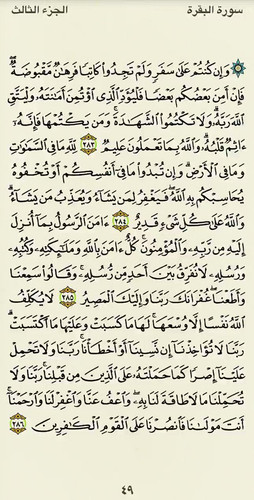 سورة البقرة الجزء الثالث
۞ وَإِن كُنتُمْ عَلَىٰ سَفَرٍ وَلَمْ تَجِدُوا۟ كَاتِبًا فَرِهَـٰنٌ مَّقْبُوضَةٌ
فَإِنْ أَمِنَ بَعْضُكُم بَعْضًا فَلْيُؤَدِّ ٱلَّذِى ٱؤْتُمِنَ أَمَـٰنَتَهُۥ وَلْيَتَّقِ
ٱللَّهَ رَبَّهُۥ وَلَا تَكْتُمُوا۟ ٱلشَّهَـٰدَةَ وَمَن يَكْتُمْهَا فَإِنَّهُۥٓ
ءَاثِمٌ قَلْبُهُۥ وَٱللَّهُ بِمَا تَعْمَلُونَ عَلِيمٌ ٢٨٣ لِّلَّهِ مَا فِى ٱلسَّمَـٰوَٰتِ
وَمَا فِى ٱلْأَرْضِ وَإِن تُبْدُوا۟ مَا فِىٓ أَنفُسِكُمْ أَوْ تُخْفُوهُ
يُحَاسِبْكُم بِهِ ٱللَّهُ فَيَغْفِرُ لِمَن يَشَآءُ وَيُعَذِّبُ مَن يَشَآءُ
وَٱللَّهُ عَلَىٰ كُلِّ شَىْءٍ قَدِيرٌ ٢٨٤ ءَامَنَ ٱلرَّسُولُ بِمَآ أُنزِلَ
إِلَيْهِ مِن رَّبِّهِۦ وَٱلْمُؤْمِنُونَ كُلٌّ ءَامَنَ بِٱللَّهِ وَمَلَـٰٓئِكَتِهِۦ وَكُتُبِهِۦ
وَرُسُلِهِۦ لَا نُفَرِّقُ بَيْنَ أَحَدٍ مِّن رُّسُلِهِۦ وَقَالُوا۟ سَمِعْنَا
وَأَطَعْنَا غُفْرَانَكَ رَبَّنَا وَإِلَيْكَ ٱلْمَصِيرُ ٢٨٥ لَا يُكَلِّفُ
ٱللَّهُ نَفْسًا إِلَّا وُسْعَهَا لَهَا مَا كَسَبَتْ وَعَلَيْهَا مَا ٱكْتَسَبَتْ
رَبَّنَا لَا تُؤَاخِذْنَآ إِن نَّسِينَآ أَوْ أَخْطَأْنَا رَبَّنَا وَلَا تَحْمِلْ
عَلَيْنَآ إِصْرًا كَمَا حَمَلْتَهُۥ عَلَى ٱلَّذِينَ مِن قَبْلِنَا رَبَّنَا وَلَا
تُحَمِّلْنَا مَا لَا طَاقَةَ لَنَا بِهِۦ وَٱعْفُ عَنَّا وَٱغْفِرْ لَنَا وَٱرْحَمْنَآ
أَنتَ مَوْلَىٰنَا فَٱنصُرْنَا عَلَى ٱلْقَوْمِ ٱلْكَـٰفِرِينَ ٢٨٦
٤٩